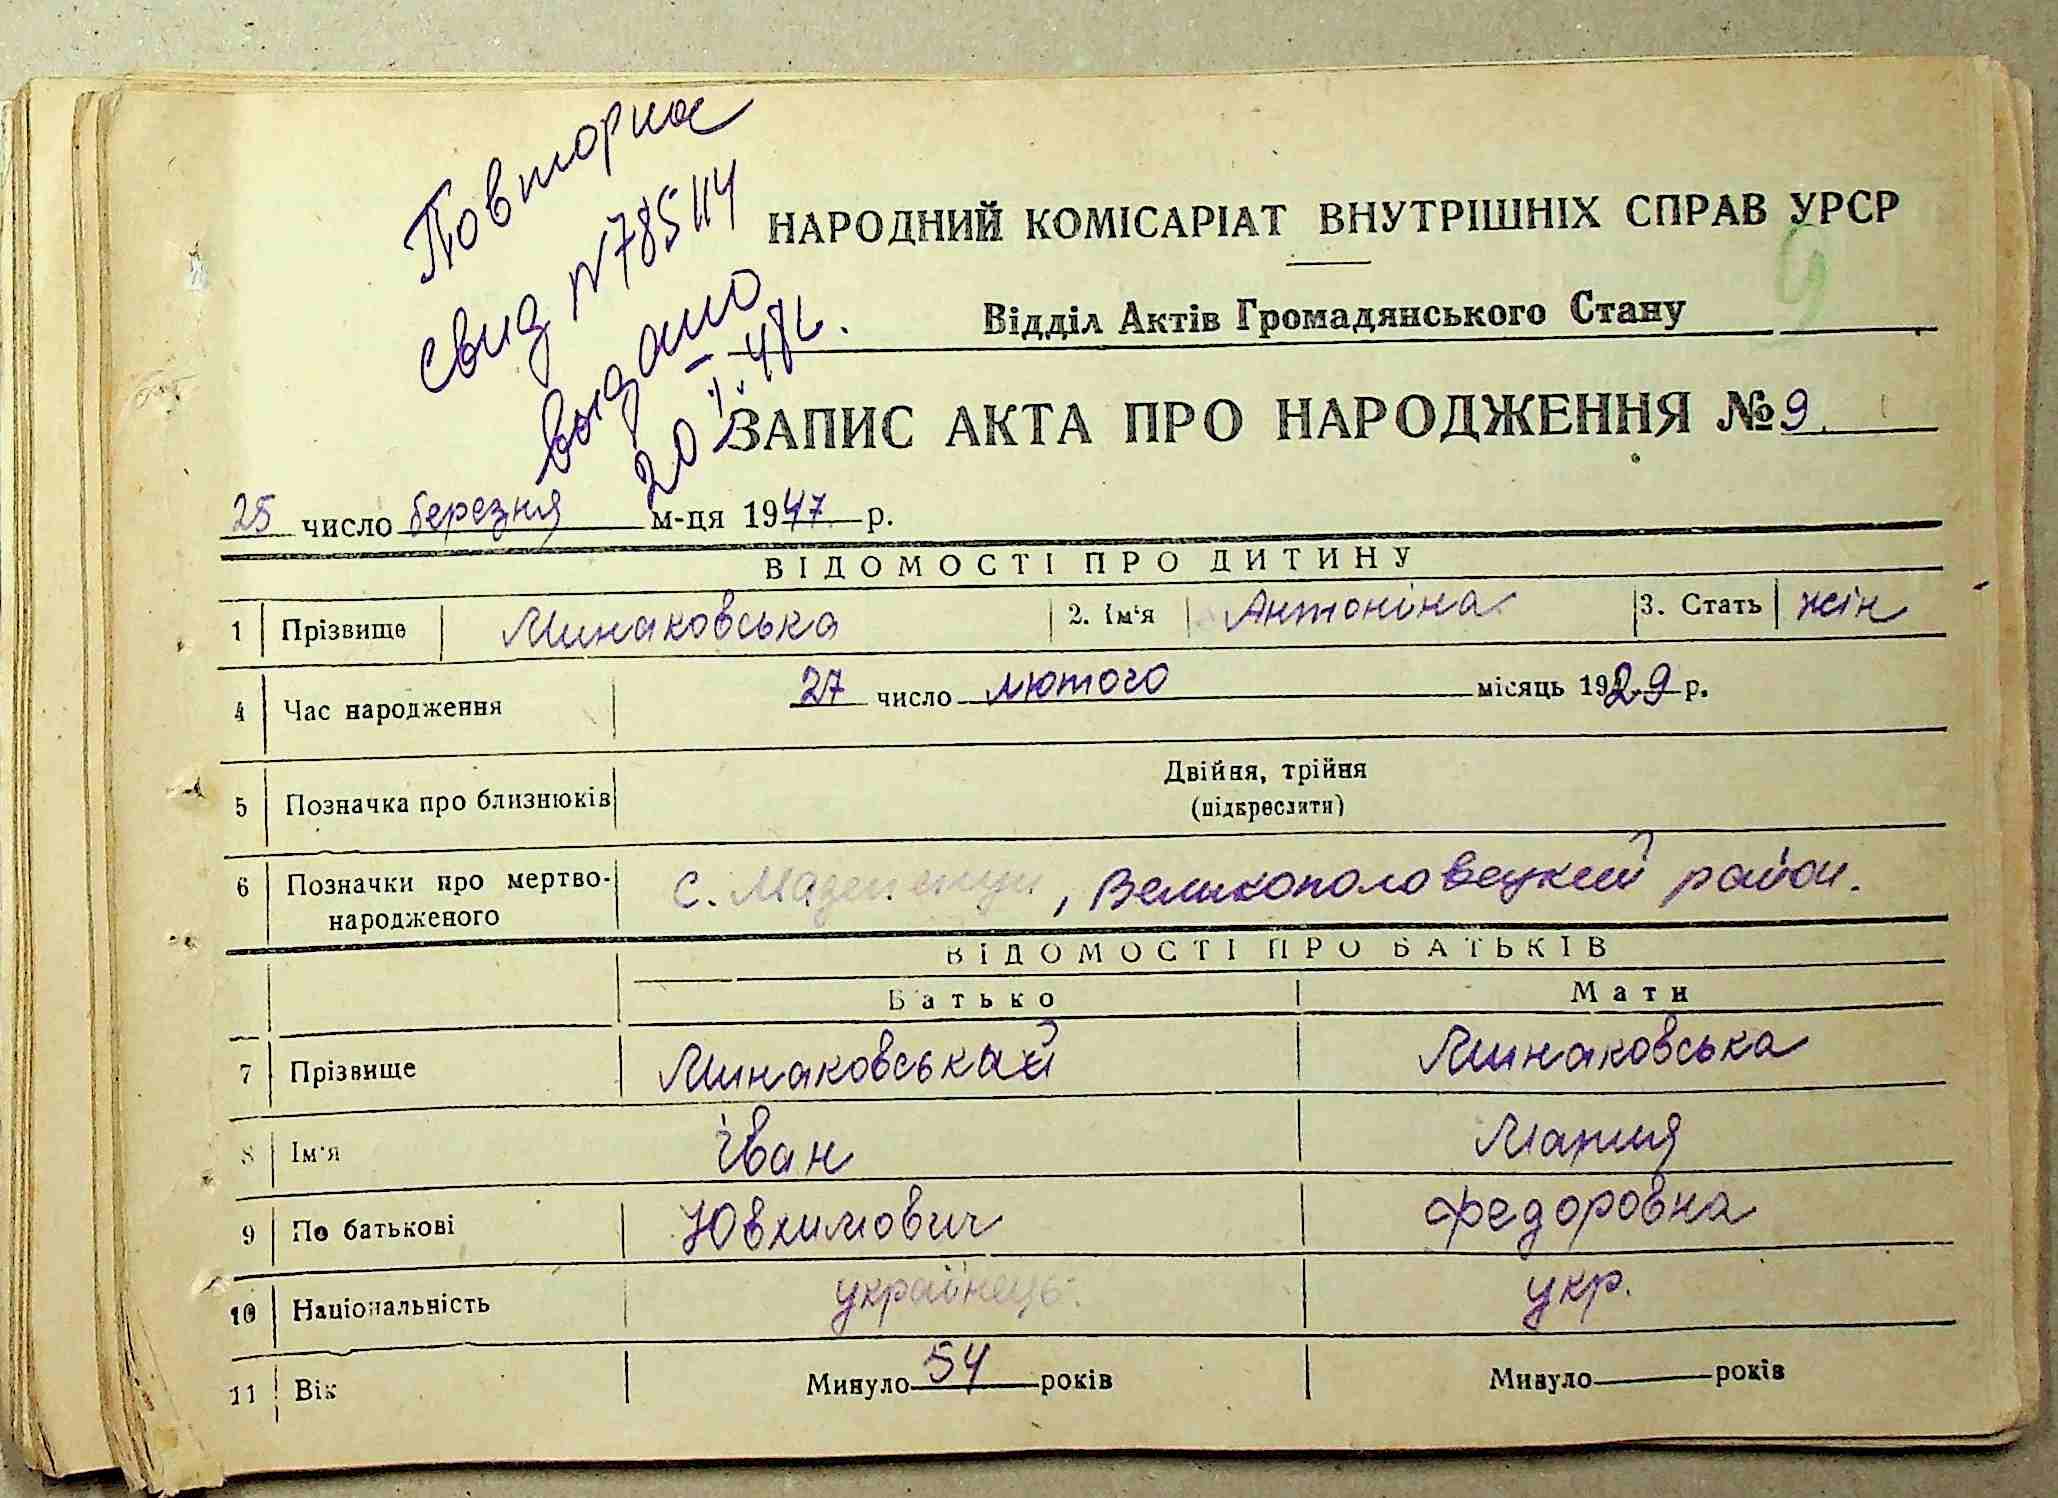 Повторне
свид №785114
видано
20 48г.
9
НАРОДНИЙ КОМІСАРІАТ ВНУТРІШНІХ СПРАВ УРСР
Відділ Актів Громадянського Стану
ЗАПИС АКТА ПРО НАРОДЖЕННЯ №9.
25 число березня м-ця 1947 р.
ВІДОМОСТІ ПРО ДИТИНУ
1 Прізвище Минаковська 2. Ім'я Антоніна 3. Стать жін
4 Час народження 27 число лютого місяць 1929 р.
5 Позначка про близнюків Двійня, трійня
(підкреслити)
6 Позначки про мертво-
народженого с. , Великополовецкий район.
ВІДОМОСТІ ПРО БАТЬКІВ
Батько Мати
7 Прізвище Минаковський Минаковська
8 Ім'я Іван Мария
9 По батькові Ювхимович Федоровна
10 Національність українець. укр.
11 Вік Минуло 54 років Минуло років